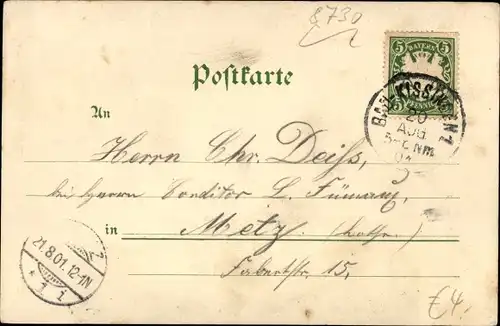 8730
5 BAYERN 5
5 PFENNIG 5
Postkarte
BAD KISSINGEN
20
AUG
5-6 NM
An
Herrn Chr. Deiss,
bei Herrn Conditor L.
in Metz (Lothr.)
Fabertstr. 15,
21.8.01.12-1N
€4.